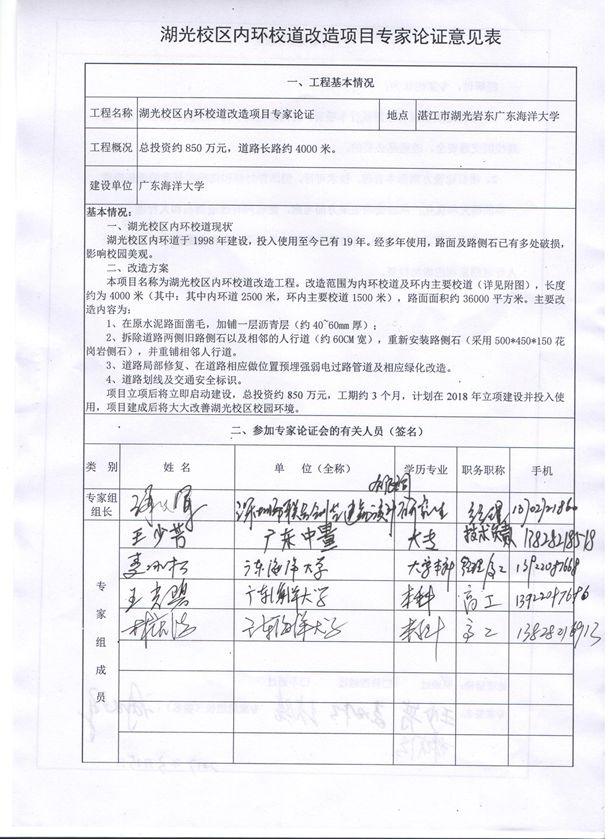 湖光校区内环校道改造项目专家论证意见表
一、工程基本情况
工程名称 湖光校区内环校道改造项目专家论证 地点 湛江市湖光岩东广东海洋大学
工程概况 总投资约 850 万元，道路长路约 4000 米。
建设单位 广东海洋大学
基本情况：
一、湖光校区内环校道现状
湖光校区内环道于 1998 年建设，投入使用至今已有 19 年。经多年使用，路面及路侧石已有多处破损，
影响校园美观。
二、改造方案
本项目名称为湖光校区内环校道改造工程。改造范围为内环校道及环内主要校道（详见附图），长度
约为 4000 米（其中：其中内环道 2500 米，环内主要校道 1500 米），路面面积约 36000 平方米。主要改
造内容为：
1、在原水泥路面凿毛，加铺一层沥青层（约 40~60mm 厚）；
2、拆除道路两侧旧路侧石以及相邻的人行道（约 60CM 宽），重新安装路侧石（采用 500*450*150 花
岗岩侧石），并重铺相邻人行道。
3、道路局部修复、在道路相应做位置预埋强弱电过路管道及相应绿化改造。
4、道路划线及交通安全标识。
项目立项后将立即启动建设，总投资约 850 万元，工期约 3 个月，计划在 2018 年立项建设并投入使
用，项目建成后将大大改善湖光校区校园环境。
二、参加专家论证会的有关人员（签名）
类 别 姓 名 单 位（全称） 学历专业 职务职称 手机
专家组
组长 研究生
王少普 广东中 大专 技术 13828218518
广东海洋大学 大学本科
广东海洋大学 本科 高工 13922097696
广东海洋大学 本科 高工
专
家
组
成
员